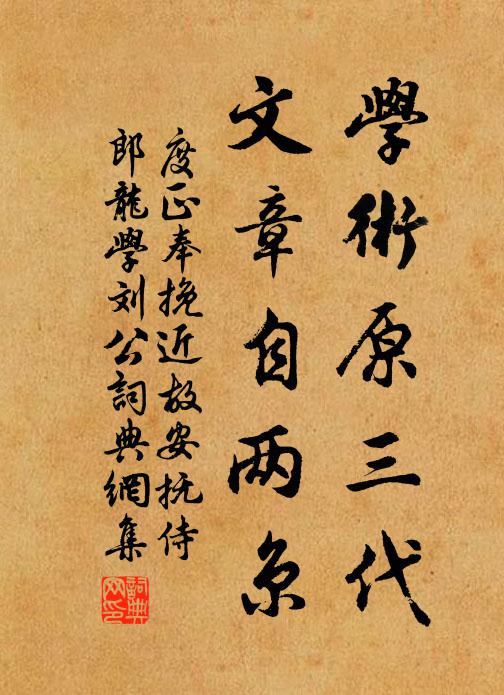 學術原三代
文章自两京
度正奉挽近故安抚侍
郎龍學刘公詞典網集
詞典网印